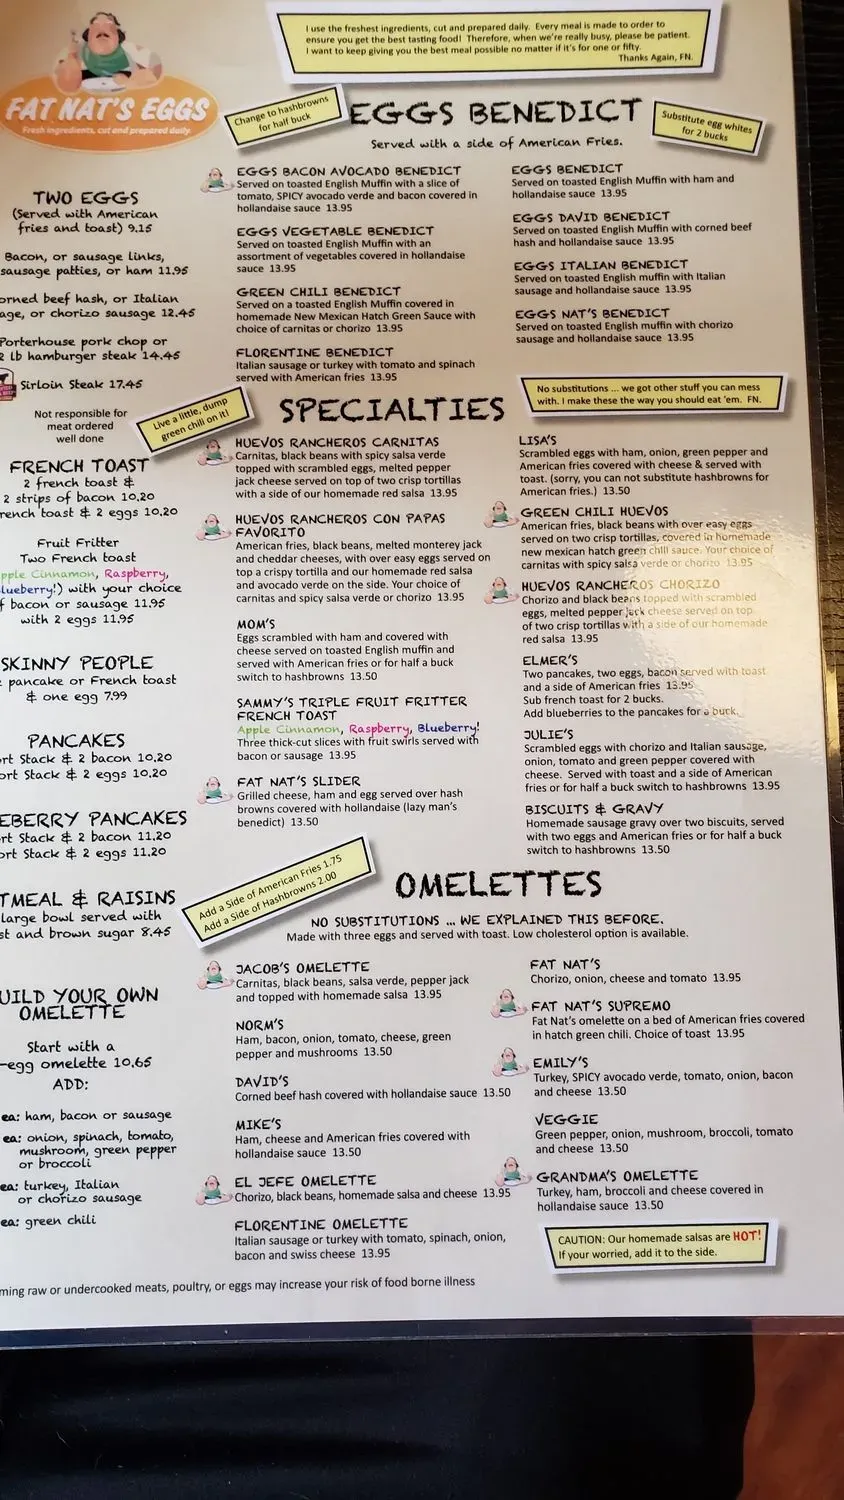 I use the freshest ingredients, cut and prepared daily. Every meal is made to order to
ensure you get the best tasting food! Therefore, when we're really busy, please be patient.
I want to keep giving you the best meal possible no matter if it's for one or fifty.
Thanks Again, FN.
FAT NAT'S EGGS
Fresh ingredients, cut and prepared daily
TWO EGGS
(Served with American
fries and toast) 9.15
Bacon, or sausage links,
sausage patties, or ham 11.95
orned beef hash, or Italian
age, or chorizo sausage 12.45
Porterhouse pork chop or
2 lb hamburger steak 14.45
Sirloin Steak 17.45
Not responsible for
meat ordered
well done
FRENCH TOAST
2 french toast &
2 strips of bacon 10.20
rench toast & 2 eggs 10.20
Fruit Fritter
Two French toast
pple Cinnamon, Raspberry,
lueberry!) with your choice
f bacon or sausage 11.95
with 2 eggs 11.95
SKINNY PEOPLE
pancake or French toast
& one egg 7.99
PANCAKES
rt Stack & 2 bacon 10.20
ort Stack & 2 eggs 10.20
EBERRY PANCAKES
rt Stack & 2 bacon 11.20
ort Stack & 2 eggs 11.20
TMEAL & RAISINS
large bowl served with
st and brown sugar 8.45
UILD YOUR OWN
OMELETTE
Start with a
-egg omelette 10.65
ADD:
ea: ham, bacon or sausage
ea: onion, spinach, tomato,
mushroom, green pepper
or broccoli
ea: turkey, Italian
or chorizo sausage
ea: green chili
Change to hashbrowns
for half buck
EGGS BENEDICT
Substitute egg whites
for 2 bucks
Served with a side of American Fries.
EGGS BACON AVOCADO BENEDICT
Served on toasted English Muffin with a slice of
tomato, SPICY avocado verde and bacon covered in
hollandaise sauce 13.95
EGGS VEGETABLE BENEDICT
Served on toasted English Muffin with an
assortment of vegetables covered in hollandaise
sauce 13.95
GREEN CHILI BENEDICT
Served on a toasted English Muffin covered in
homemade New Mexican Hatch Green Sauce with
choice of carnitas or chorizo 13.95
FLORENTINE BENEDICT
Italian sausage or turkey with tomato and spinach
served with American fries 13.95
EGGS BENEDICT
Served on toasted English Muffin with ham and
hollandaise sauce 13.95
EGGS DAVID BENEDICT
Served on toasted English Muffin with corned beef
hash and hollandaise sauce 13.95
EGGS ITALIAN BENEDICT
Served on toasted English muffin with Italian
sausage and hollandaise sauce 13.95
EGGS NAT'S BENEDICT
Served on toasted English muffin with chorizo
sausage and hollandaise sauce 13.95
Live a little, dump
green chili on it!
SPECIALTIES
No substitutions ... we got other stuff you can mess
with. I make these the way you should eat 'em. FN.
HUEVOS RANCHEROS CARNITAS
Carnitas, black beans with spicy salsa verde
topped with scrambled eggs, melted pepper
jack cheese served on top of two crisp tortillas
with a side of our homemade red salsa 13.95
HUEVOS RANCHEROS CON PAPAS
FAVORITO
American fries, black beans, melted monterey jack
and cheddar cheeses, with over easy eggs served on
top a crispy tortilla and our homemade red salsa
and avocado verde on the side. Your choice of
carnitas and spicy salsa verde or chorizo 13.95
MOM'S
Eggs scrambled with ham and covered with
cheese served on toasted English muffin and
served with American fries or for half a buck
switch to hashbrowns 13.50
SAMMY'S TRIPLE FRUIT FRITTER
FRENCH TOAST
Apple Cinnamon, Raspberry, Blueberry!
Three thick-cut slices with fruit swirls served with
bacon or sausage 13.95
FAT NAT'S SLIDER
Grilled cheese, ham and egg served over hash
browns covered with hollandaise (lazy man's
benedict) 13.50
LISA'S
Scrambled eggs with ham, onion, green pepper and
American fries covered with cheese & served with
toast. (sorry, you can not substitute hashbrowns for
American fries.) 13.50
GREEN CHILI HUEVOS
American fries, black beans with over easy eggs
served on two crisp tortillas, covered in homemade
new mexican hatch green chili sauce. Your choice of
carnitas with spicy salsa verde or chorizo 13.95
HUEVOS RANCHEROS CHORIZO
Chorizo and black beans topped with scrambled
eggs, melted pepper jack cheese served on top
of two crisp tortillas with a side of our homemade
red salsa 13.95
ELMER'S
Two pancakes, two eggs, bacon served with toast
and a side of American fries 13.95
Sub french toast for 2 bucks.
Add blueberries to the pancakes for a buck.
JULIE'S
Scrambled eggs with chorizo and Italian sausage,
onion, tomato and green pepper covered with
cheese. Served with toast and a side of American
fries or for half a buck switch to hashbrowns 13.95
BISCUITS & GRAVY
Homemade sausage gravy over two biscuits, served
with two eggs and American fries or for half a buck
switch to hashbrowns 13.50
Add a Side of American Fries 1.75
Add a Side of Hashbrowns 2.00
OMELETTES
NO SUBSTITUTIONS ... WE EXPLAINED THIS BEFORE.
Made with three eggs and served with toast. Low cholesterol option is available.
JACOB'S OMELETTE
Carnitas, black beans, salsa verde, pepper jack
and topped with homemade salsa 13.95
NORM'S
Ham, bacon, onion, tomato, cheese, green
pepper and mushrooms 13.50
DAVID'S
Corned beef hash covered with hollandaise sauce 13.50
MIKE'S
Ham, cheese and American fries covered with
hollandaise sauce 13.50
EL JEFE OMELETTE
Chorizo, black beans, homemade salsa and cheese 13.95
FLORENTINE OMELETTE
Italian sausage or turkey with tomato, spinach, onion,
bacon and swiss cheese 13.95
FAT NAT'S
Chorizo, onion, cheese and tomato 13.95
FAT NAT'S SUPREMO
Fat Nat's omelette on a bed of American fries covered
in hatch green chili. Choice of toast 13.95
EMILY'S
Turkey, SPICY avocado verde, tomato, onion, bacon
and cheese 13.50
VEGGIE
Green pepper, onion, mushroom, broccoli, tomato
and cheese 13.50
GRANDMA'S OMELETTE
Turkey, ham, broccoli and cheese covered in
hollandaise sauce 13.50
CAUTION: Our homemade salsas are HOT!
If your worried, add it to the side.
ming raw or undercooked meats, poultry, or eggs may increase your risk of food borne illness